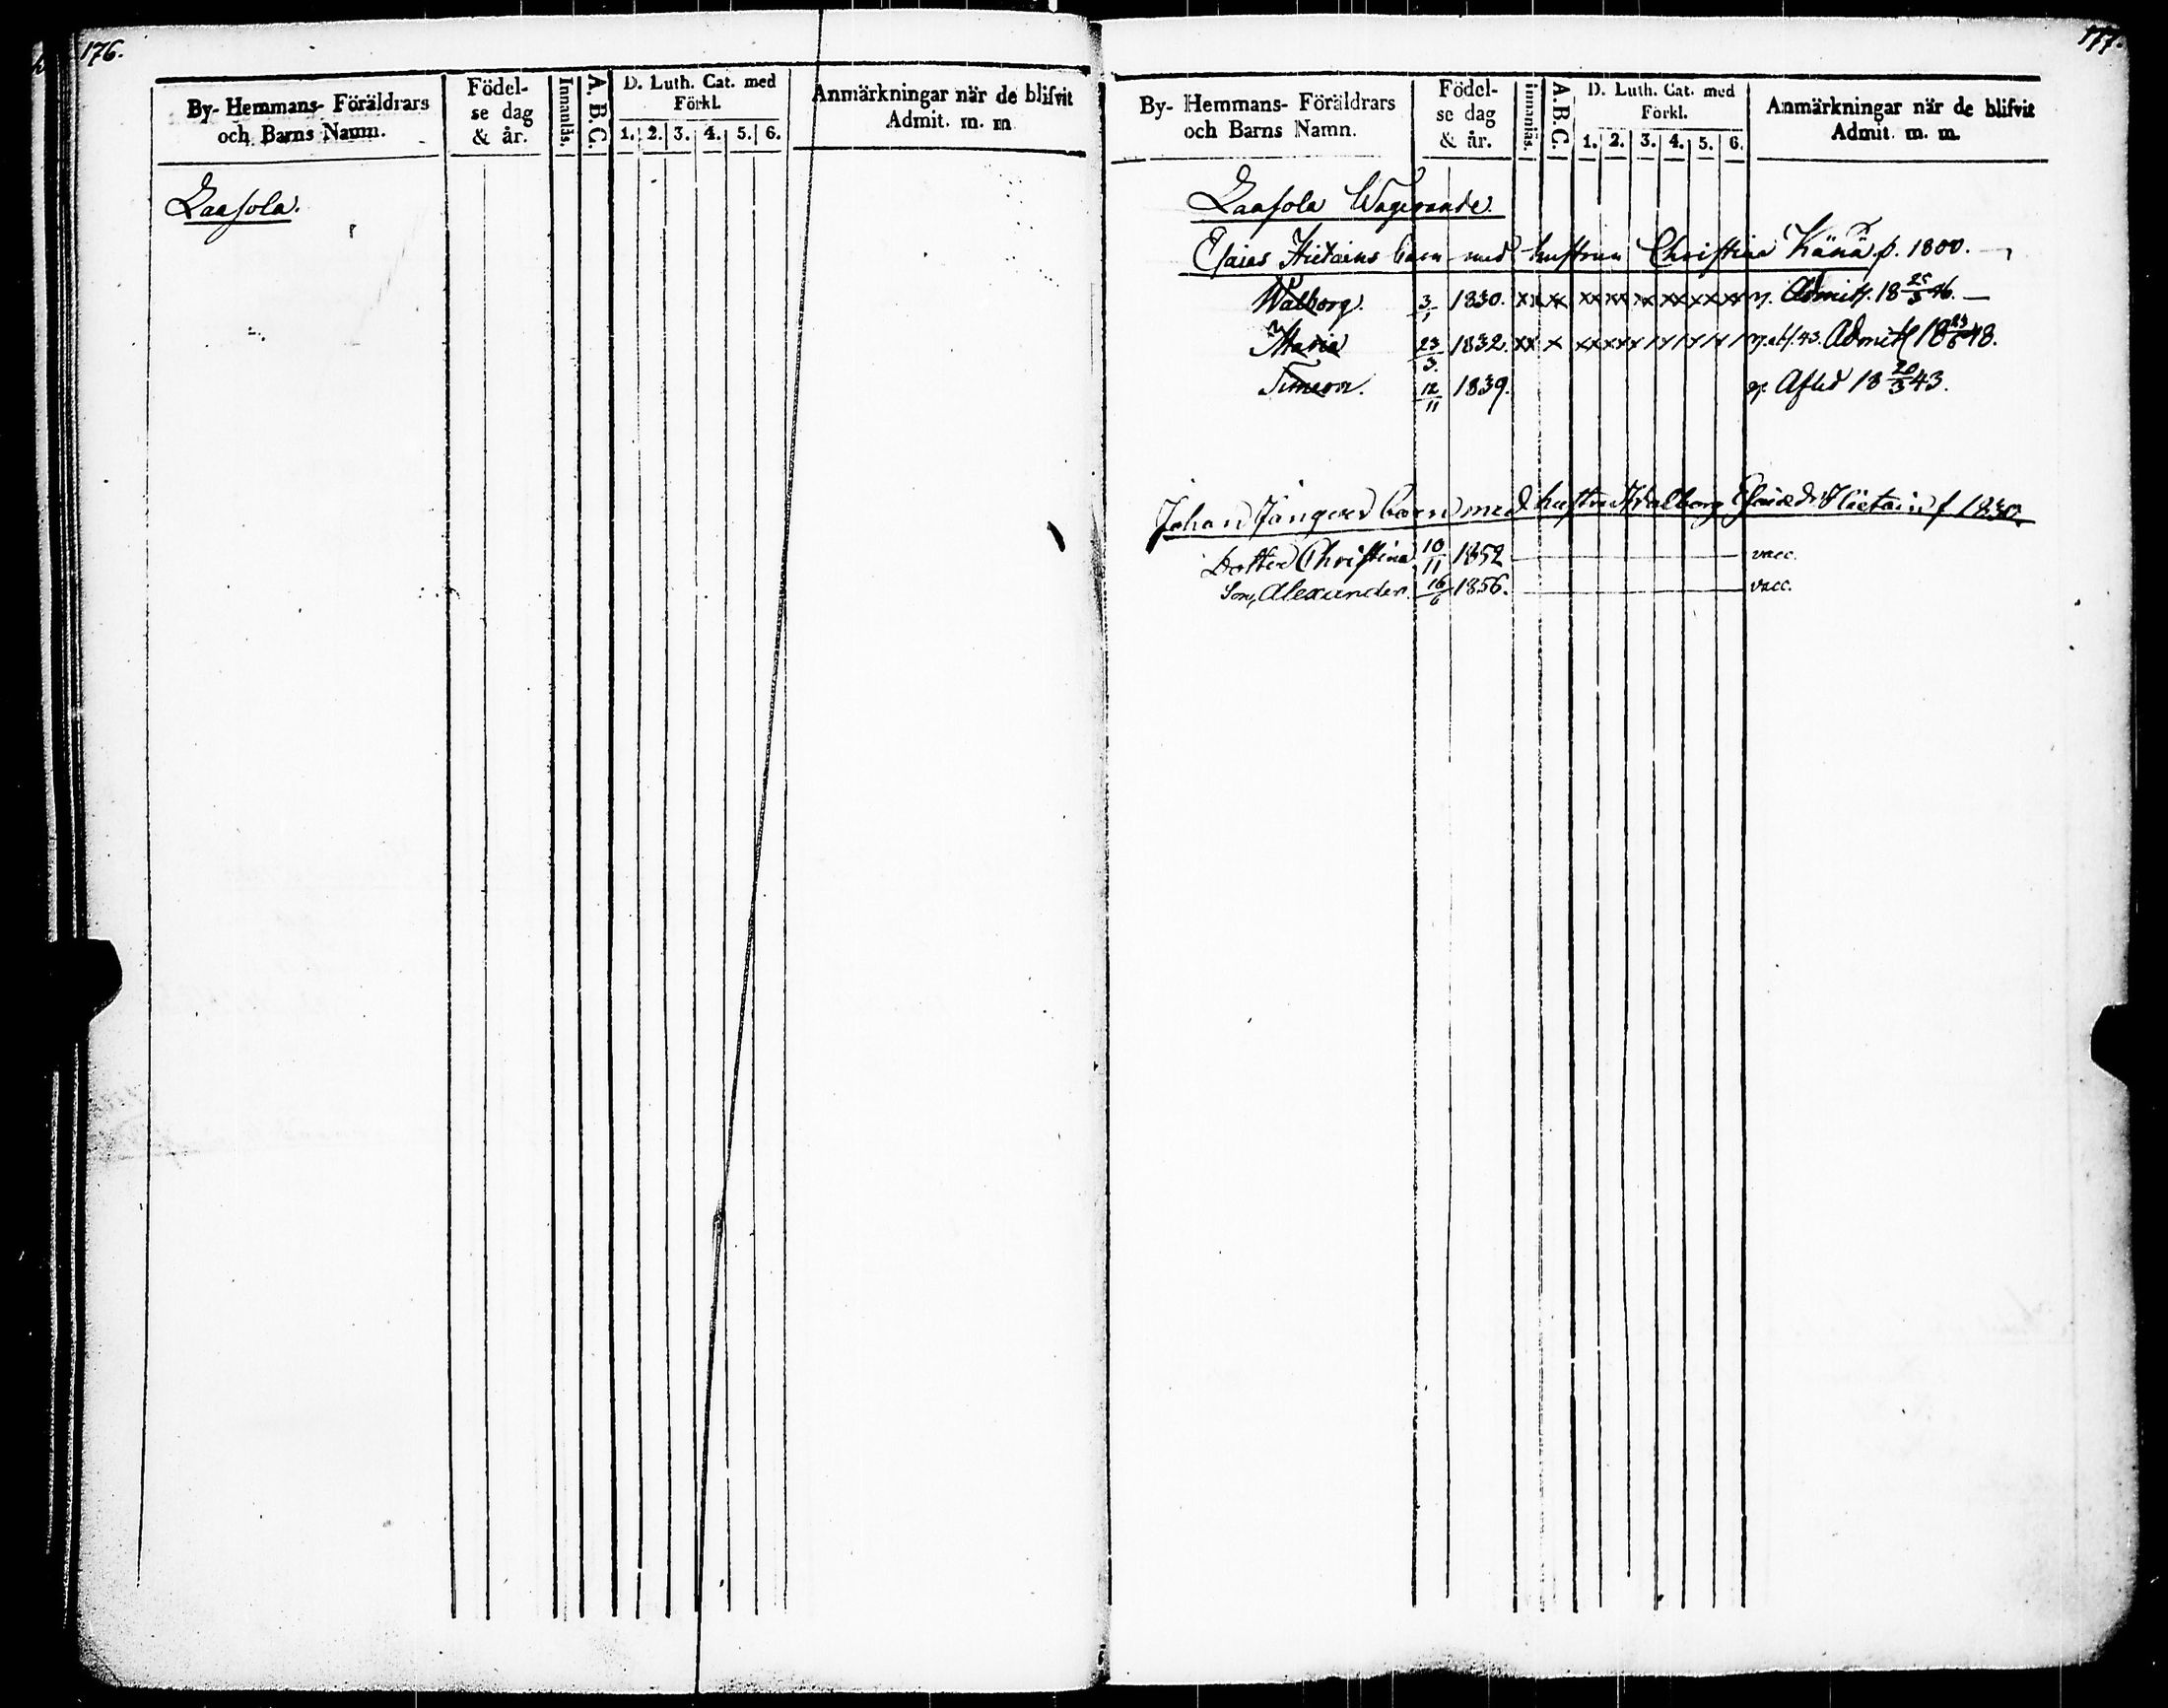 176.
By- Hemmans- Föräldrars
och Barns Namn.
Födel-
se dag
& år.
Innanläs.
A. B. C.
D. Luth. Cat. med
Förkl.
1. 2. 3. 4. 5. 6.
Anmärkningar när de blifvit
Admit. m. m
Laasola.
177.
By- Hemmans- Föräldrars
och Barns Namn.
Födel-
se dag
& år.
Innanläs.
A. B. C.
D. Luth. Cat. med
Förkl.
1. 2. 3. 4. 5. 6.
Anmärkningar när de blifvit
Admit. m. m.
Laasola
Esaias Hietains barn med hustrun Christina Känä f. 1800.
Walborg. 3/1 1830. Admitt. 18 25/5 46.
Maria 23/3. 1832. Admitt 18 48.
Simeon. 12/11 1839. Afled 18 20/3 43.
Johan barn med hustru Walborg Hietain f 1830.
Dotter Christina 10/11 1852 vacc.
Son, Alexander. 16/6 1856. vacc.